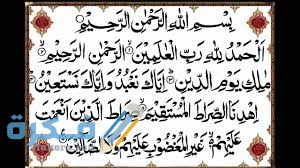 بِسْمِ اللّٰهِ الرَّحْمٰنِ الرَّحِيْمِ
اَلْحَمْدُ لِلّٰهِ رَبِّ الْعٰلَمِيْنَ ۙ الرَّحْمٰنِ الرَّحِيْمِ ۙ
مٰلِكِ يَوْمِ الدِّيْنِ ؕ اِيَّاكَ نَعْبُدُ وَاِيَّاكَ نَسْتَعِيْنُ ؕ
اِهْدِنَا الصِّرَاطَ الْمُسْتَقِيْمَ ۙ صِرَاطَ الَّذِيْنَ اَنْعَمْتَ
عَلَيْهِمْ ۙ غَيْرِ الْمَغْضُوْبِ عَلَيْهِمْ وَلَا الضَّآلِّيْنَ
فكرة